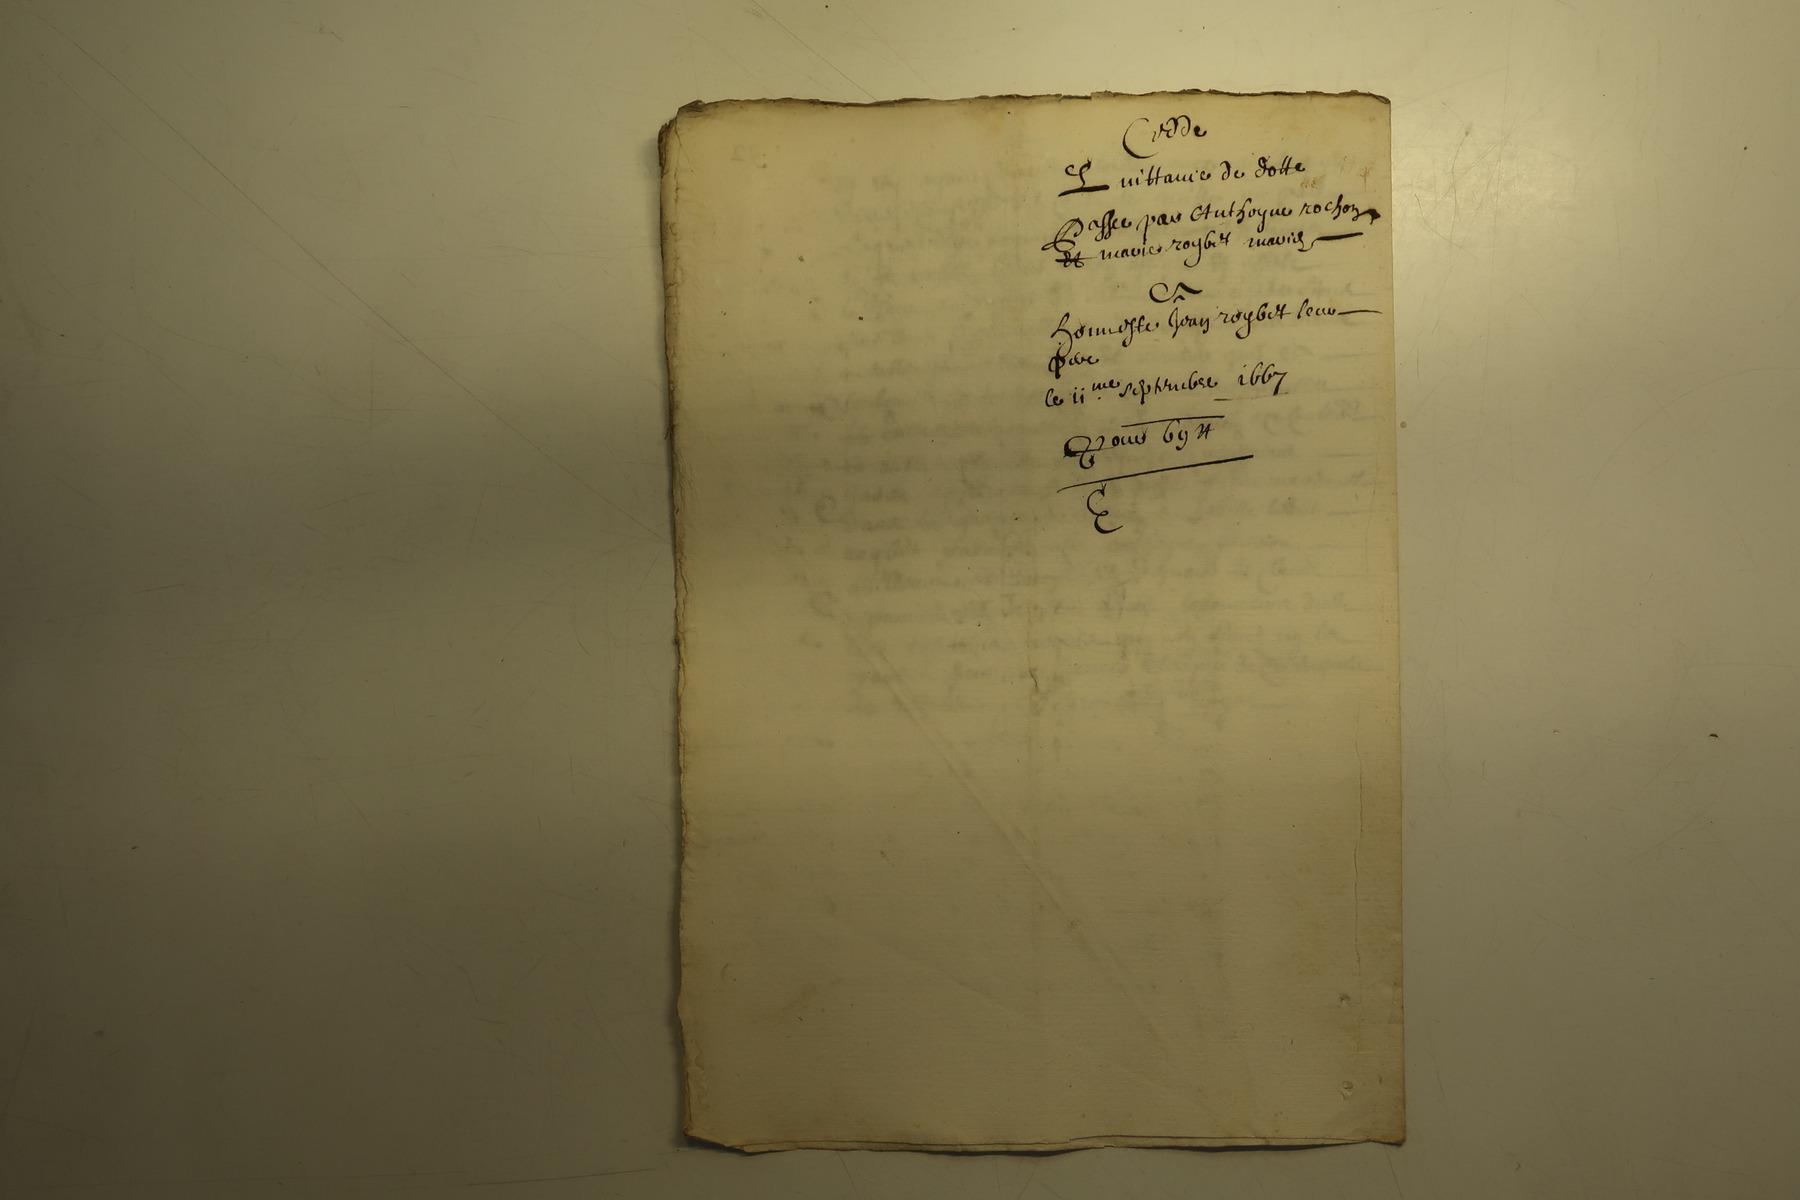 Cedde
Quittance de dotte
Passee par Anthoyne rochon
Et marie roybet mariés
A
honneste Jean roybet leur
pere
le 11.me septembre 1667
Pour 69 lt